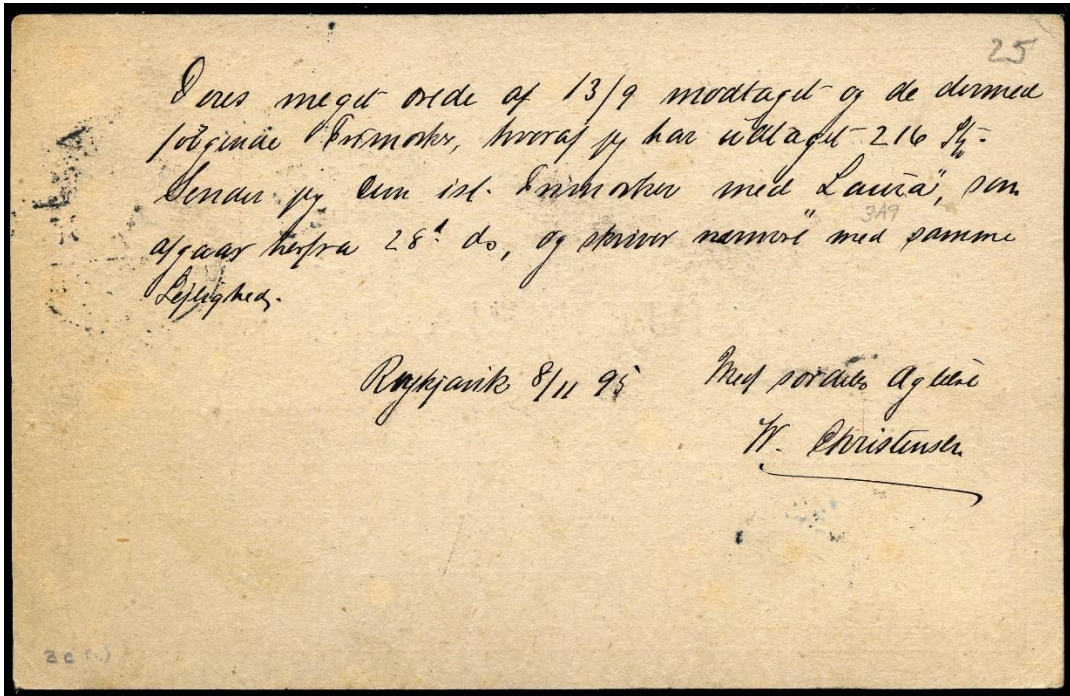 25
Deres meget ærede af 13/9 modtaget og de dermed
følgende Frimærker, hvoraf jeg har udtaget 216 Stk.
Sender jeg Dem isl. Frimærker med "Laura", som
3A9
afgaar herfra 28d ds, og skriver nærmere med samme
Lejlighed.
Reykjavik 8/11 95
Med særdeles Agtelse
W. Christensen
3c